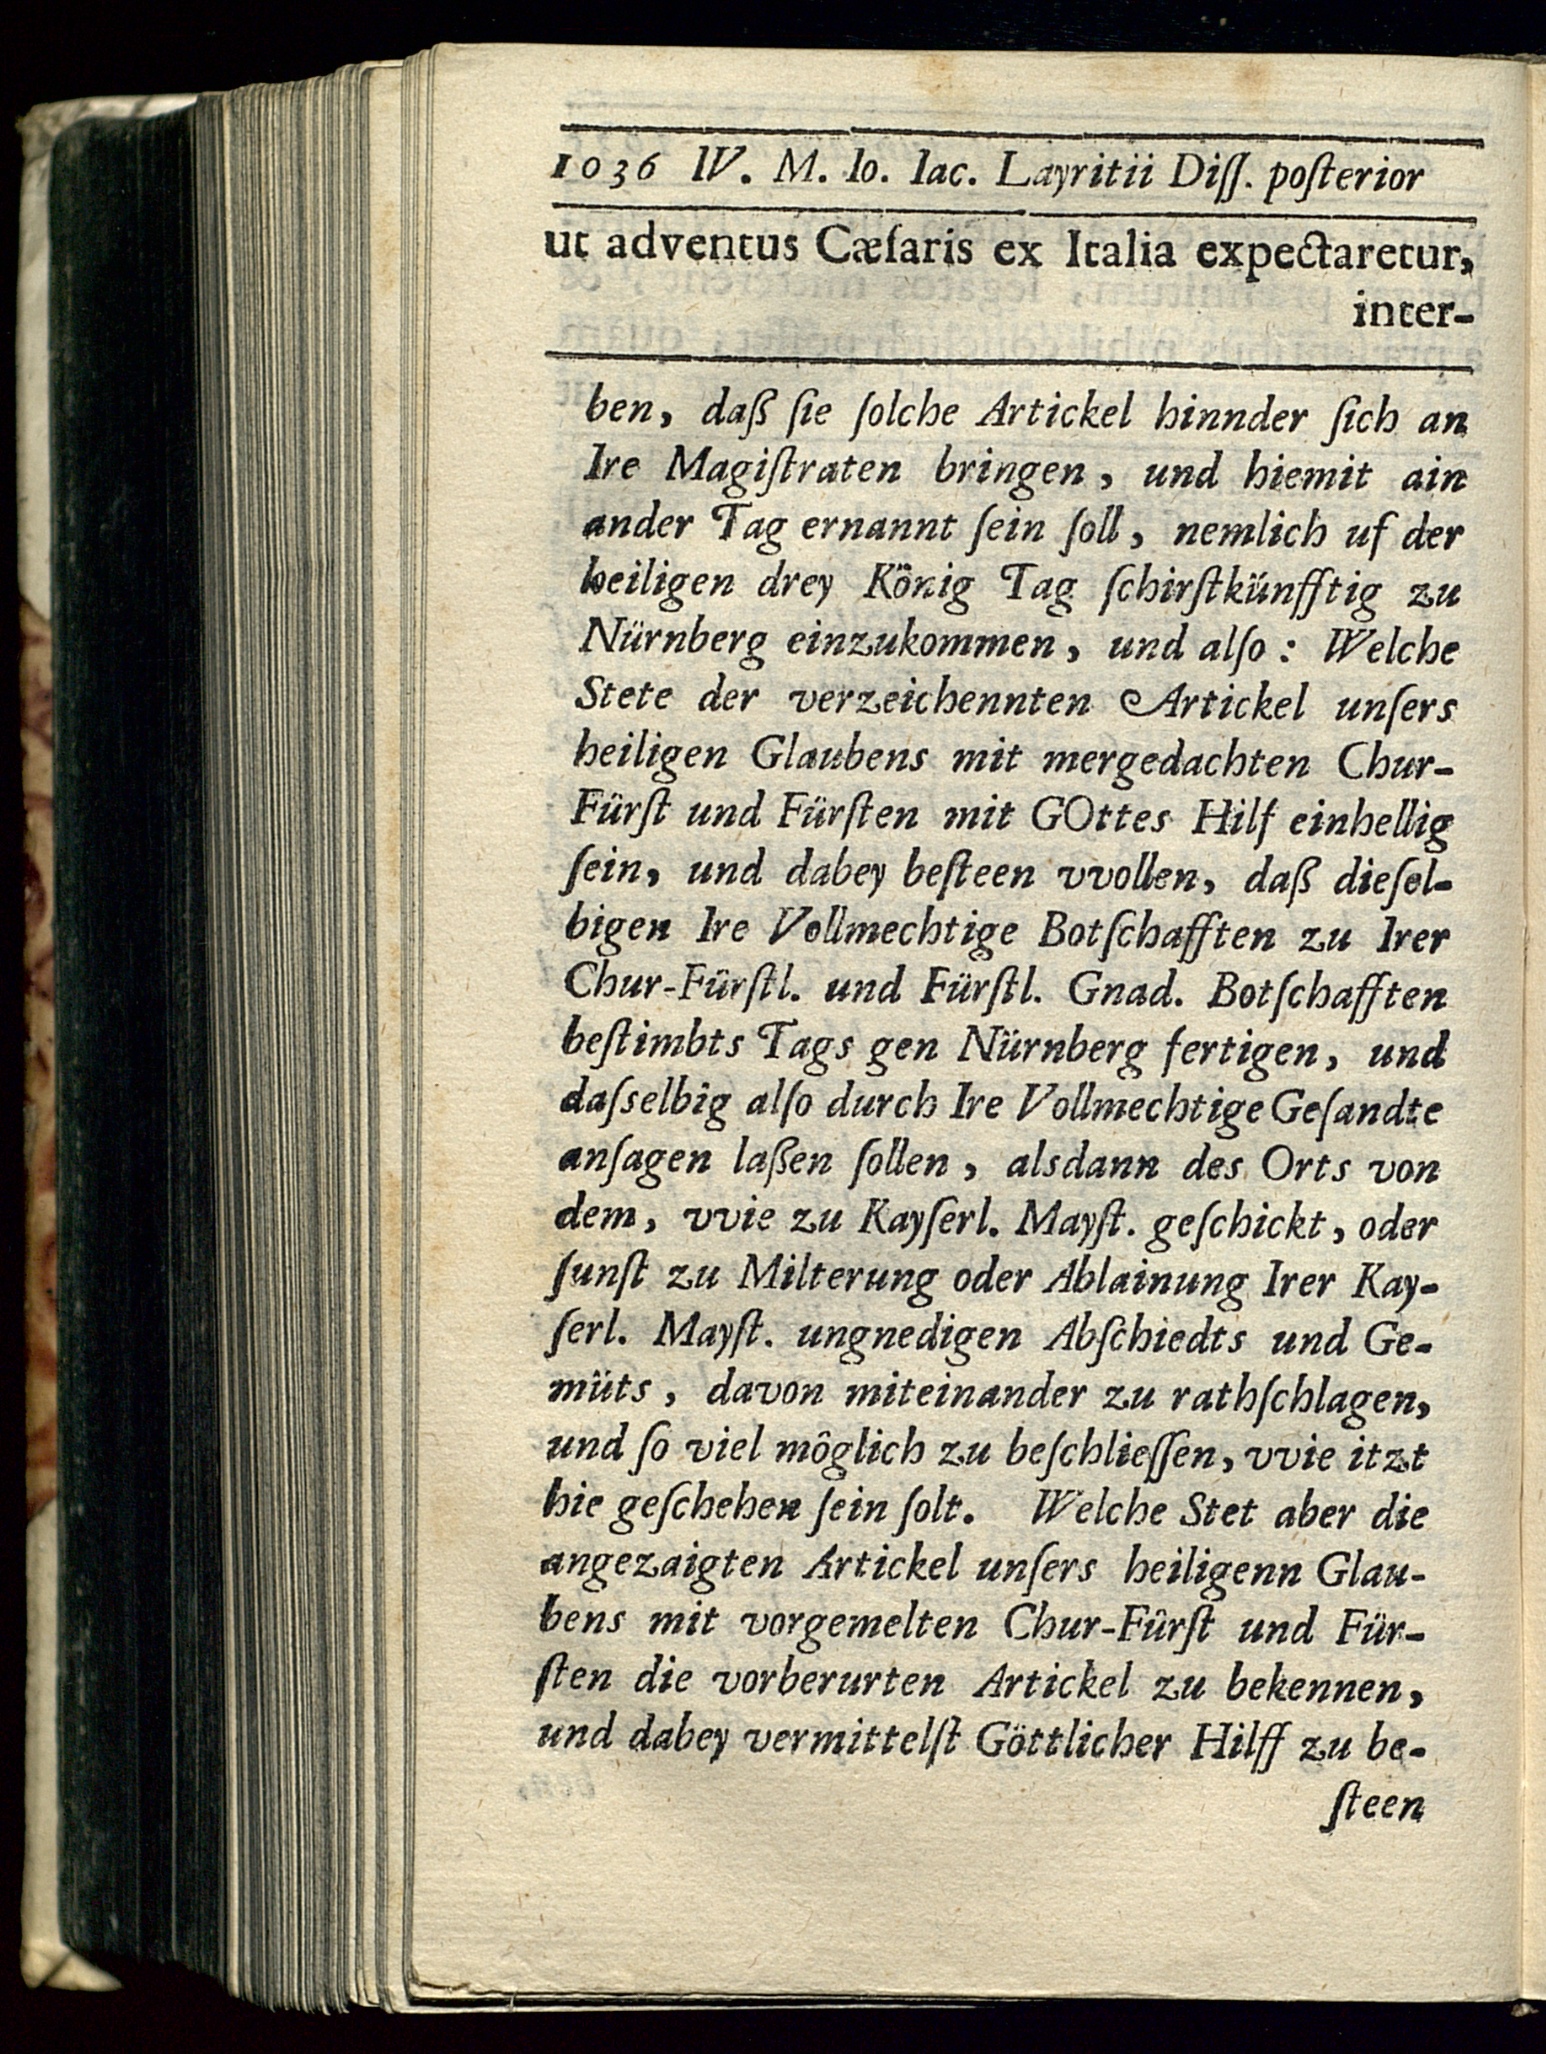 1036 IV. M. Io. Iac. Layritii Diſſ. poſterior
ut adventus Cæſaris ex Italia expectaretur,
inter-
ben, daß ſie ſolche Artickel hinnder ſich an
Ire Magiſtraten bringen, und hiemit ain
ander Tag ernannt ſein ſoll, nemlich uf der
heiligen drey König Tag ſchirſtkünfftig zu
Nürnberg einzukommen, und alſo: Welche
Stete der verzeichennten Artickel unſers
heiligen Glaubens mit mergedachten Chur-
Fürſt und Fürſten mit GOttes Hilf einhellig
ſein, und dabey beſteen vvollen, daß dieſel-
bigen Ire Vollmechtige Botſchafften zu Irer
Chur-Fûrſtl. und Fürſtl. Gnad. Botſchafften
beſtimbts Tags gen Nürnberg fertigen, und
daſselbig alſo durch Ire Vollmechtige Geſandte
anſagen laßen ſollen, alsdann des Orts von
dem, vvie zu Kayſerl. Mayſt. geſchickt, oder
ſunſt zu Milterung oder Ablainung Irer Kay-
ſerl. Mayſt. ungnedigen Abſchiedts und Ge-
müts, davon miteinander zu rathſchlagen,
und ſo viel môglich zu beſchlieſſen, vvie itzt
hie geſchehen ſein ſolt. Welche Stet aber die
angezaigten Artickel unſers heiligenn Glau-
bens mit vorgemelten Chur-Fûrſt und Für-
ſten die vorberurten Artickel zu bekennen,
und dabey vermittelſt Göttlicher Hilff zu be-
ſteen